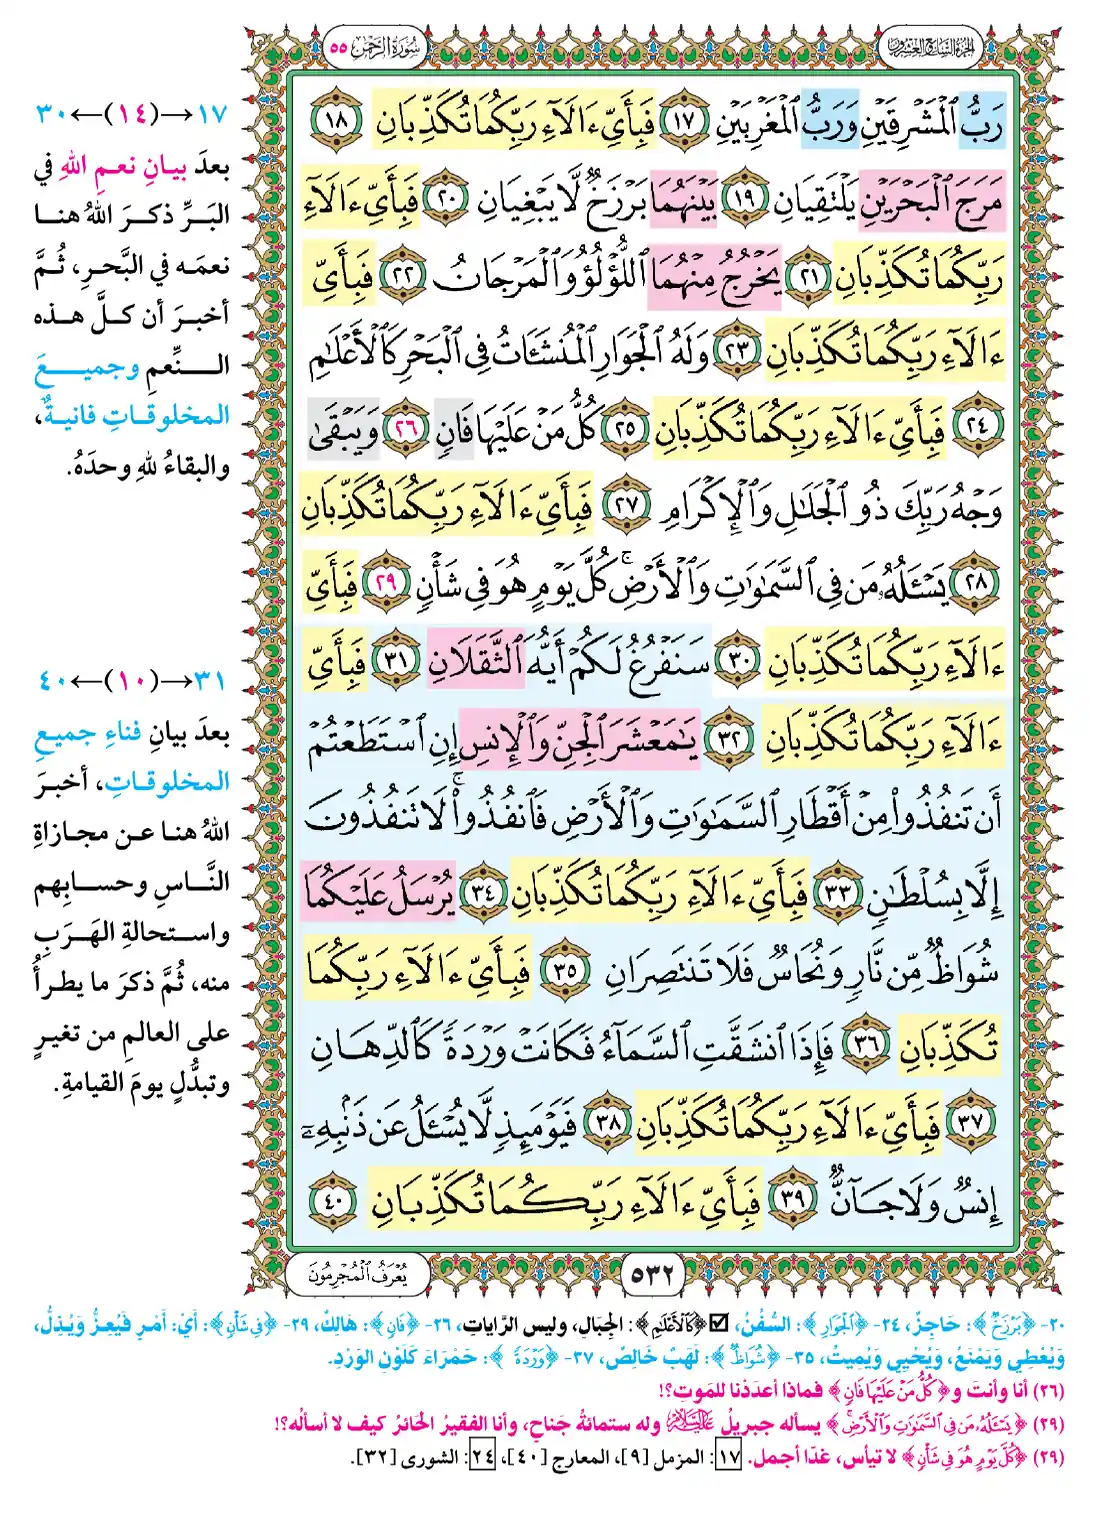 الجزء السابع والعشرون
سُورَةُ الرَّحْمٰن ٥٥
رَبُّ الْمَشْرِقَيْنِ وَرَبُّ الْمَغْرِبَيْنِ ١٧ فَبِأَيِّ ءَالَآءِ رَبِّكُمَا تُكَذِّبَانِ ١٨
مَرَجَ الْبَحْرَيْنِ يَلْتَقِيَانِ ١٩ بَيْنَهُمَا بَرْزَخٌ لَّا يَبْغِيَانِ ٢٠ فَبِأَيِّ ءَالَآءِ
رَبِّكُمَا تُكَذِّبَانِ ٢١ يَخْرُجُ مِنْهُمَا اللُّؤْلُؤُ وَالْمَرْجَانُ ٢٢ فَبِأَيِّ
ءَالَآءِ رَبِّكُمَا تُكَذِّبَانِ ٢٣ وَلَهُ الْجَوَارِ الْمُنشَئَاتُ فِي الْبَحْرِ كَالْأَعْلَٰمِ
٢٤ فَبِأَيِّ ءَالَآءِ رَبِّكُمَا تُكَذِّبَانِ ٢٥ كُلُّ مَنْ عَلَيْهَا فَانٍ ٢٦ وَيَبْقَىٰ
وَجْهُ رَبِّكَ ذُو الْجَلَٰلِ وَالْإِكْرَامِ ٢٧ فَبِأَيِّ ءَالَآءِ رَبِّكُمَا تُكَذِّبَانِ
٢٨ يَسْـَٔلُهُۥ مَن فِي السَّمَٰوَٰتِ وَالْأَرْضِ ۚ كُلَّ يَوْمٍ هُوَ فِي شَأْنٍ ٢٩ فَبِأَيِّ
ءَالَآءِ رَبِّكُمَا تُكَذِّبَانِ ٣٠ سَنَفْرُغُ لَكُمْ أَيُّهَ الثَّقَلَانِ ٣١ فَبِأَيِّ
ءَالَآءِ رَبِّكُمَا تُكَذِّبَانِ ٣٢ يَٰمَعْشَرَ الْجِنِّ وَالْإِنسِ إِنِ اسْتَطَعْتُمْ
أَن تَنفُذُوا۟ مِنْ أَقْطَارِ السَّمَٰوَٰتِ وَالْأَرْضِ فَانفُذُوا۟ ۚ لَا تَنفُذُونَ
إِلَّا بِسُلْطَٰنٍ ٣٣ فَبِأَيِّ ءَالَآءِ رَبِّكُمَا تُكَذِّبَانِ ٣٤ يُرْسَلُ عَلَيْكُمَا
شُوَاظٌ مِّن نَّارٍ وَنُحَاسٌ فَلَا تَنتَصِرَانِ ٣٥ فَبِأَيِّ ءَالَآءِ رَبِّكُمَا
تُكَذِّبَانِ ٣٦ فَإِذَا انشَقَّتِ السَّمَآءُ فَكَانَتْ وَرْدَةً كَالدِّهَانِ
٣٧ فَبِأَيِّ ءَالَآءِ رَبِّكُمَا تُكَذِّبَانِ ٣٨ فَيَوْمَئِذٍ لَّا يُسْـَٔلُ عَن ذَنۢبِهِۦٓ
إِنسٌ وَلَا جَآنٌّ ٣٩ فَبِأَيِّ ءَالَآءِ رَبِّكُمَا تُكَذِّبَانِ ٤٠
٥٣٢
يُعْرَفُ الْمُجْرِمُونَ
١٧→(١٤)←٣٠
بعدَ بيانِ نعمِ اللهِ في
البَرِّ ذكرَ اللهُ هنا
نعمَه في البَّحرِ، ثُمَّ
أخبرَ أن كلَّ هذه
النِّعمِ وجميعَ
المخلوقاتِ فانيةٌ،
والبقاءُ للهِ وحدَهُ.
٣١→(١٠)←٤٠
بعدَ بيانِ فناءِ جميعِ
المخلوقاتِ، أخبرَ
اللهُ هنا عن مجازاةِ
النَّاسِ وحسابِهم
واستحالةِ الهَرَبِ
منه، ثُمَّ ذكرَ ما يطرأُ
على العالمِ من تغيرٍ
وتبدُّلٍ يومَ القيامةِ.
٢٠- ﴿بَرْزَخٌ﴾: حَاجِزٌ، ٢٤- ﴿الْجَوَارِ﴾: السُّفُنُ، ☑ ﴿كَالْأَعْلَٰمِ﴾: الجِبَالِ، وليس الرَّاياتِ، ٢٦- ﴿فَانٍ﴾: هَالِكٌ، ٢٩- ﴿فِي شَأْنٍ﴾: أَيْ: أَمْرٍ فَيُعِزُّ وَيُذِلُّ،
وَيُعْطِي وَيَمْنَعُ، وَيُحْيِي وَيُمِيتُ، ٣٥- ﴿شُوَاظٌ﴾: لَهَبٌ خَالِصٌ، ٣٧- ﴿وَرْدَةً﴾: حَمْرَاءَ كَلَوْنِ الوَرْدِ.
(٢٦) أنا وأنتَ و﴿كُلُّ مَنْ عَلَيْهَا فَانٍ﴾ فماذا أعدَدْنا للموتِ؟!
(٢٩) ﴿يَسْـَٔلُهُۥ مَن فِي السَّمَٰوَٰتِ وَالْأَرْضِ﴾ يسأله جبريلُ عَلَيْهِ السَّلَام وله ستمائةُ جَناحٍ، وأنا الفقيرُ الحَائرُ كيف لا أسألُه؟!
(٢٩) ﴿كُلَّ يَوْمٍ هُوَ فِي شَأْنٍ﴾ لا تيأس، غدًا أجمل. ١٧: المزمل [٩]، المعارج [٤٠]، ٢٤: الشورى [٣٢].